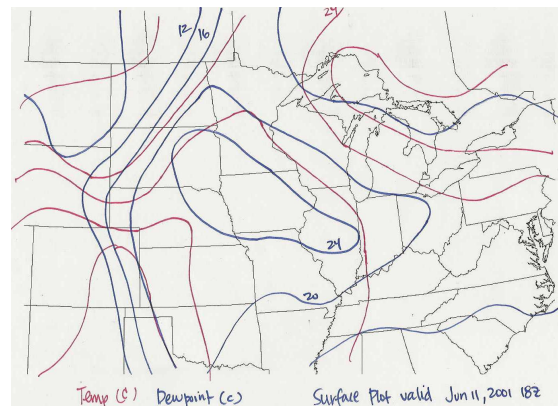 24
12 16
24
20
Temp (C) Dewpoint (c) Surface Plot valid Jun 11, 2001 18Z